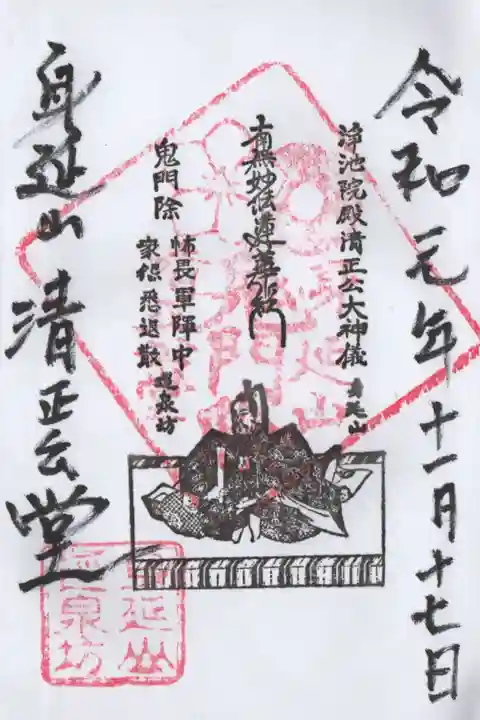 令和元年十一月十七日
浄池院殿清正公大神儀
身延山
南無妙法蓮華経
鬼門除
怖畏軍陣中
衆怨悉退散
覚泉坊
身延山清正公堂
身延山
覚泉坊